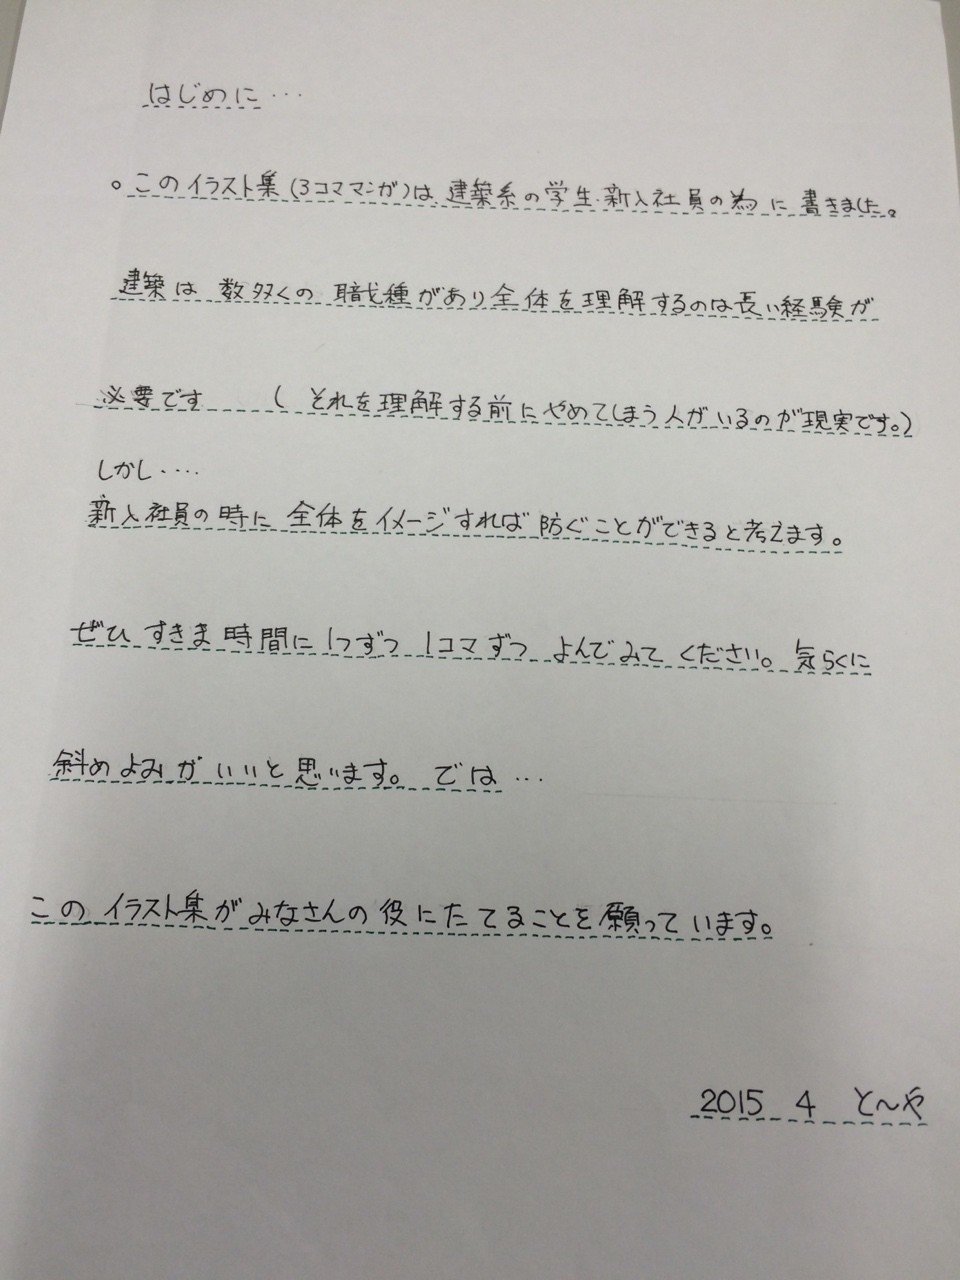 はじめに…
。このイラスト集(3コママンガ)は建築系の学生・新入社員の為に書きました。
建築は数多くの職種があり全体を理解するのは長い経験が
必要です (それを理解する前にやめてしまう人がいるのが現実です。)
しかし‥‥
新入社員の時に全体をイメージすれば防ぐことができると考えます。
ぜひすきま時間に1つずつ1コマずつよんでみてください。気らくに
斜めよみがいいと思います。では…
このイラスト集がみなさんの役にたてることを願っています。
2015 4 と〜や